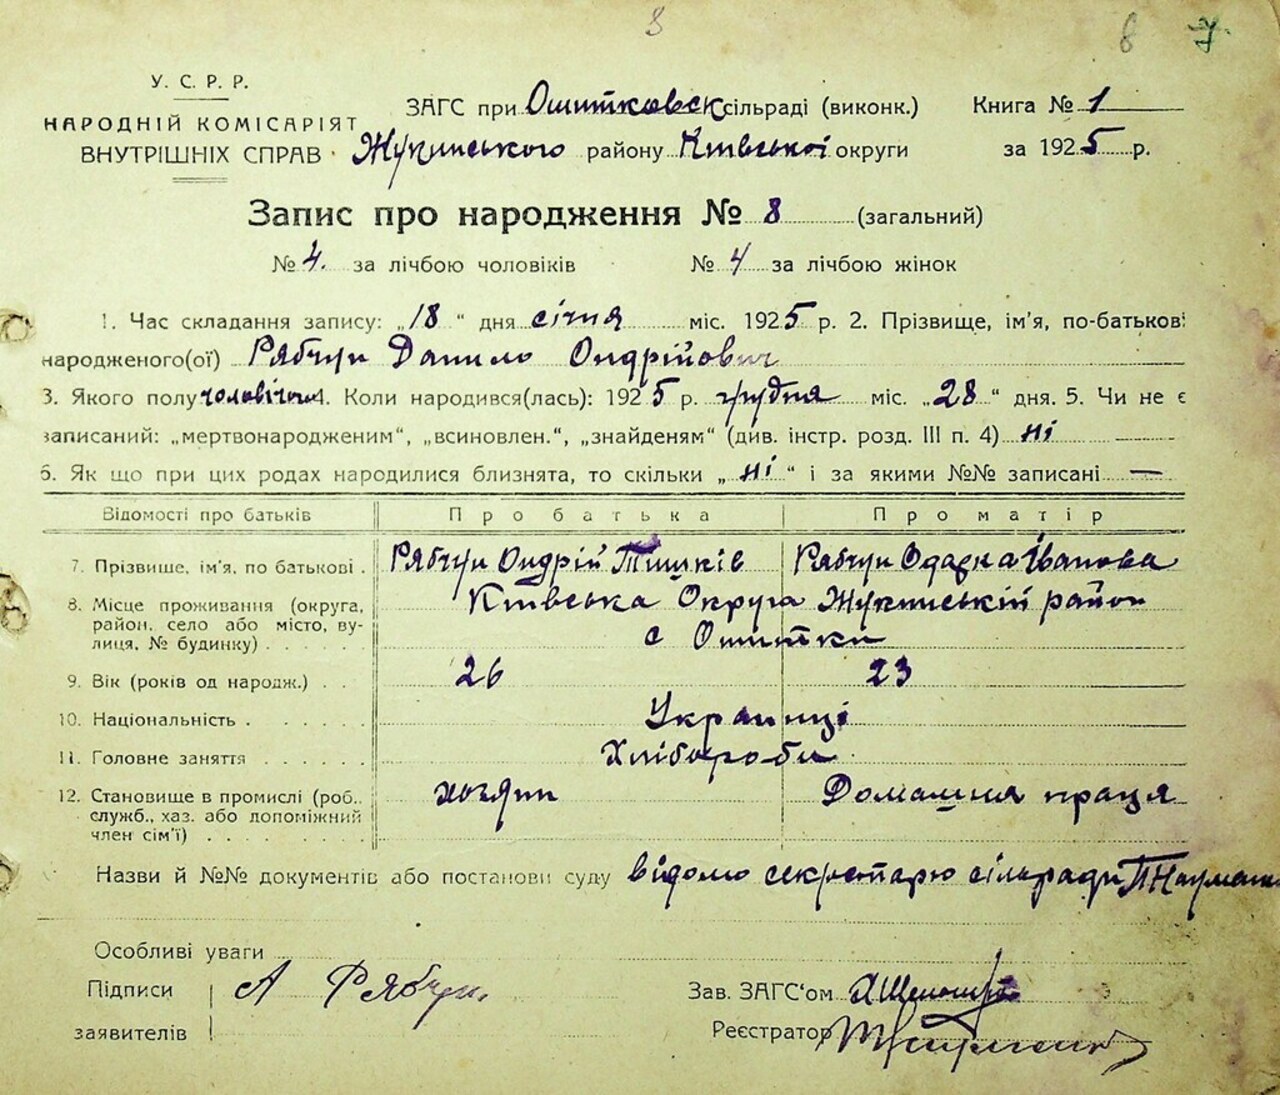 8 8 7.
У. С. Р. Р.
НАРОДНІЙ КОМІСАРІЯТ
ВНУТРІШНІХ СПРАВ
ЗАГС при Ошитковск сільраді (виконк.) Книга № 1
Жукинського району Київської округи за 1925 р.
Запис про народження № 8 (загальний)
№ 4. за лічбою чоловіків № 4 за лічбою жінок
1. Час складання запису: „18“ дня січня міс. 1925 р. 2. Прізвище, ім'я, по-батькові
народженого(ої) Рябчун Данило Ондрійович
3. Якого полу чоловічого 4. Коли народився(лась): 1925 р. грудня міс. „28“ дня. 5. Чи не є
записаний: „мертвонародженим“, „всиновлен.“, „знайденям“ (див. інстр. розд. III п. 4) ні
6. Як що при цих родах народилися близнята, то скільки „ні“ і за якими №№ записані —
Відомості про батьків Про батька Про матір
7. Прізвище, ім'я, по батькові . Рябчун Ондрій Тишків Рябчун Одарка Іванова
8. Місце проживання (округа, район, село або місто, вулиця, № будинку) Київська Округа Жукинській район
с Ошитки
9. Вік (років од народж.) . . 26 23
10. Національність . Українці
11. Головне заняття Хлібороби
12. Становище в промислі (роб., служб., хаз. або допоміжний член сім'ї) хозяин Домашня праця
Назви й №№ документів або постанови суду відомо секретарю сільради
Особливі уваги
Підписи заявителів А Рябчун.
Зав. ЗАГС'ом
Реєстратор